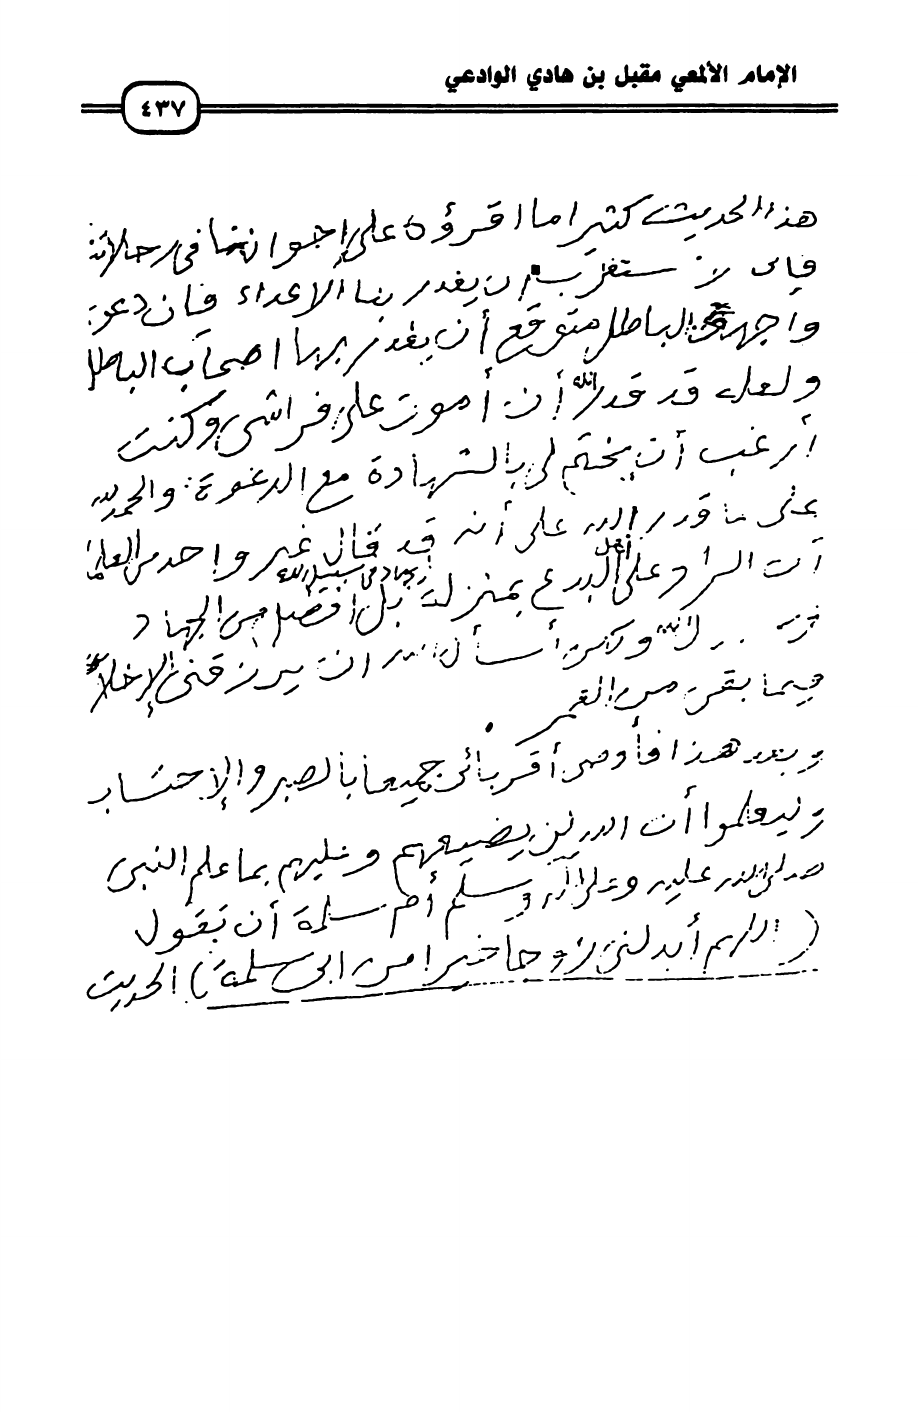 الإمام الألمعي مقبل بن هادي الوادعي
٤٣٧
هذا الحديث كثيرا ما اقرؤه على إخواننا في رحلاتنا
فإني لا ستغرب أن يغدر بنا الأعداء فإن دعوة
واجهت الباطل متوقع أن يغدر بها اصحاب الباطل
ولعله قد قدر الله أن أموت على فراشي وكنت
أرغب أن يختم لي بالشهادة مع الدعوة والحمد لله
على ما قدر الله على أنه قد قال غير واحد من العلماء
أن الرد على أهل البدع بمنزلة الجهاد في سبيل الله بل أفضل من الجهاد
في الله ولكن أسأل الله ان يرزقني الإخلاص
فيما بقي من العمر .
وبعد هذا فأوصي أقربائي جميعا بالصبر والإحتساب
وليعلموا أن الله لن يضيعهم وعليهم بما علم النبي
صلى الله عليه وعلى آله وسلم أم سلمة أن تقول
( اللهم أبدلني زوجا خيرا من ابي سلمة ) الحديث